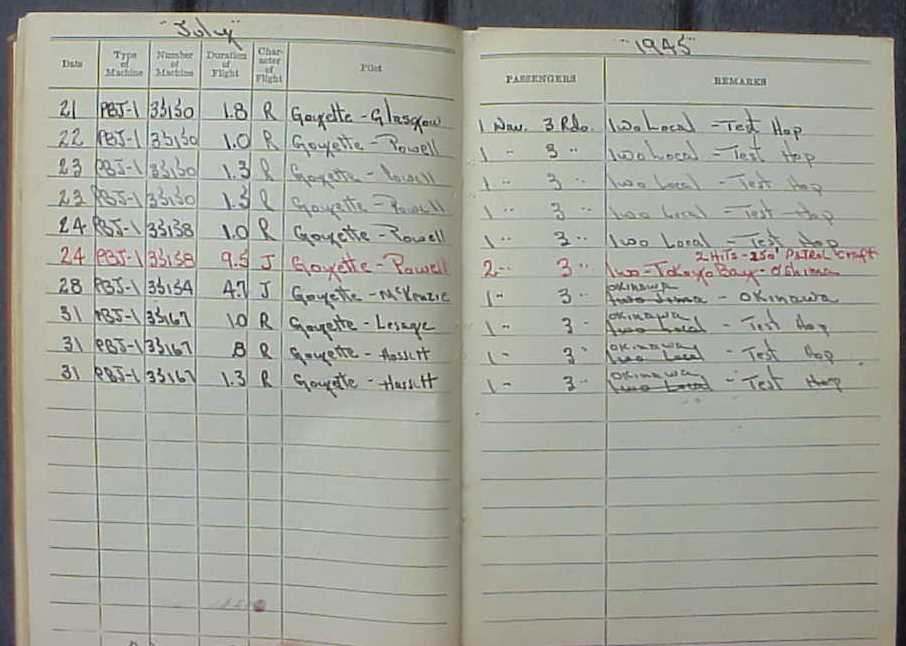 "July" "1945"
Date Type of Machine Number of Machine Duration of Flight Char-acter of Flight Pilot PASSENGERS REMARKS
21 PBJ-1 35130 1.8 R Goyette - Glasgow 1 Nav. 3 Rdo. Iwo Local - Test Hop
22 PBJ-1 35130 1.0 R Goyette - Powell 1 " 3 " Iwo Local - Test Hop
23 PBJ-1 35130 1.3 R Goyette - Powell 1 " 3 " Iwo Local - Test Hop
23 PBJ-1 35130 1.3 R Goyette - Powell 1 " 3 " Iwo Local - Test Hop
24 PBJ-1 35138 1.0 R Goyette - Powell 1 " 3 " Iwo Local - Test Hop
2 Hits - 250' Patrol Craft
24 PBJ-1 35138 9.5 J Goyette - Powell 2 " 3 " Iwo - Tokoyo Bay - O'Shima
Okinawa
28 PBJ-1 35134 4.7 J Goyette - McKenzie 1 " 3 " Iwo Jima - Okinawa
Okinawa
31 PBJ-1 35167 1.0 R Goyette - Lesage 1 " 3 " Iwo Local - Test Hop
Okinawa
31 PBJ-1 35167 .8 R Goyette - 1 " 3 " Iwo Local - Test Hop
Okinawa
31 PBJ-1 35167 1.3 R Goyette - 1 " 3 " Iwo Local - Test Hop